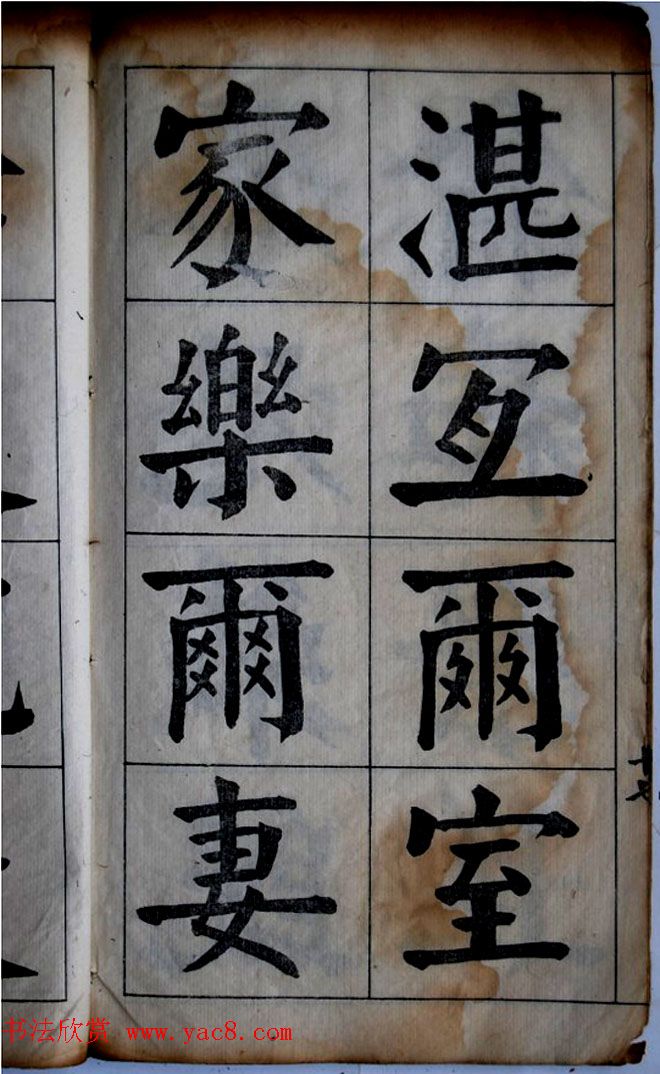 湛冝爾室
家樂爾妻
十七
书法欣赏 www.yac8.com